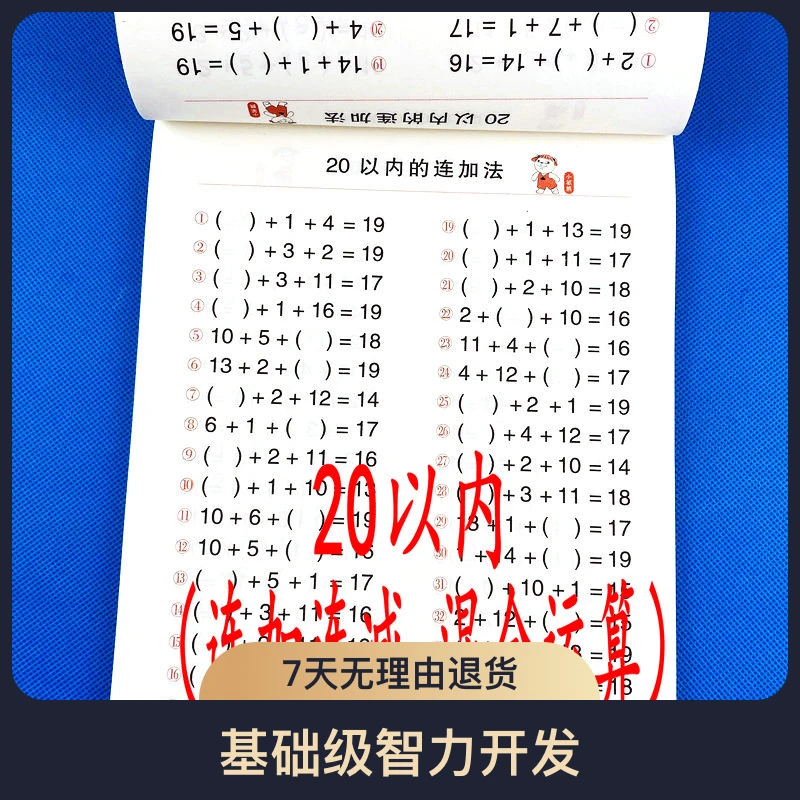 ⑳ 4+( )+5=19
② ( )+7+1=17
⑲ 14+1+( )=19
① 2+( )+14=16
20以内的连加法
20 以内的连加法
① ( )+1+4=19
② ( )+3+2=19
③ ( )+3+11=17
④ ( )+1+16=19
⑤ 10+5+( )=18
⑥ 13+2+( )=19
⑦ ( )+2+12=14
⑧ 6+1+( )=17
⑨ ( )+2+11=16
⑩ ( )+1+10=13
⑪ 10+6+( )=19
⑫ 10+5+( )=16
⑬ ( )+5+1=17
⑭ +3+11=16
⑮ (
⑯ (
⑲ ( )+1+13=19
⑳ ( )+1+11=17
㉑ ( )+2+10=18
㉒ 2+( )+10=16
㉓ 11+4+( )=16
㉔ 4+12+( )=17
㉕ ( )+2+1=19
㉖ ( )+4+12=17
㉗ ( )+2+10=14
㉘ ( )+3+11=18
㉙ 13+1+( )=17
㉚ 1+ 4+( )=19
㉛ ( )+10+1=15
㉜ 2+12+( )=15
=19
=18
20以内
(连加连减 混合运算)
7天无理由退货
基础级智力开发